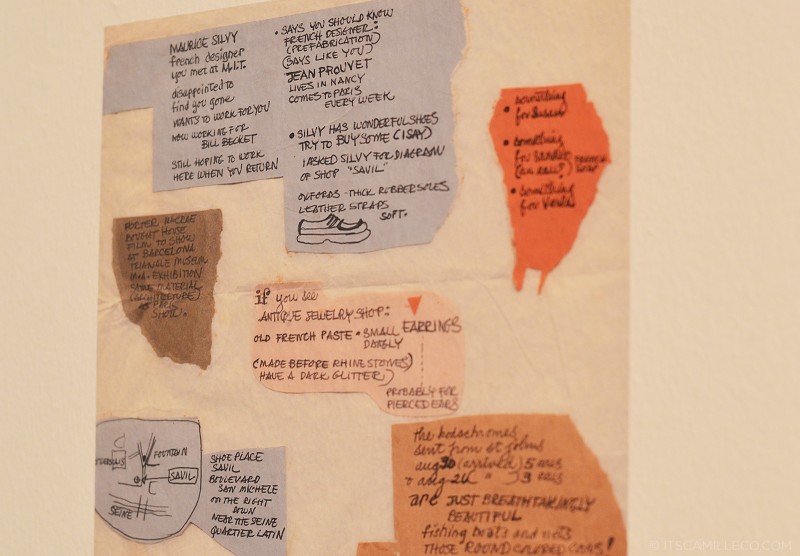 MAURICE SILVY
french designer
you met at M.I.T.
disappointed to
find you gone
WANTS TO WORK FOR YOU
NOW WORKING FOR
BILL BECKET
STILL HOPING TO WORK
HERE WHEN YOU RETURN
• SAYS YOU SHOULD KNOW
FRENCH DESIGNER:
(PREFABRICATION)
(SAYS LIKE YOU)
JEAN PROUVET
LIVES IN NANCY
COMES TO PARIS
EVERY WEEK
• SILVY HAS WONDERFUL SHOES
TRY TO BUY SOME (I SAY)
I ASKED SILVY FOR DIAGRAM
OF SHOP "SAVIL"
OXFORDS - THICK RUBBER SOLES
LEATHER STRAPS
SOFT.
• something
for Susan
• something
for
• something
for
PORTER MCCRAE
BOUGHT HOUSE
FILM TO SHOW
AT BARCELONA
MUSEUM
EXHIBITION
SAME MATERIAL
(ARCHITECTURE)
AS PARIS
SHOW.
if you see
ANTIQUE JEWELRY SHOP:
OLD FRENCH PASTE • SMALL EARRINGS
(MADE BEFORE RHINESTONES)
HAVE A DARK GLITTER)
PROBABLY FOR
PIERCED EARS
FOUNTAIN
SAVIL
SEINE
SHOE PLACE
SAVIL
BOULEVARD
SAN MICHELE
ON THE RIGHT
DOWN
NEAR THE SEINE
QUARTIER LATIN
the kodachromes
sent from st johns
aug 30 (arrived) 5
aug 24 " 3
are JUST BREATHTAKINGLY
BEAUTIFUL
fishing boats and nets
THOSE ROUND COLORED CANS!
© ITSCAMILLECO.COM